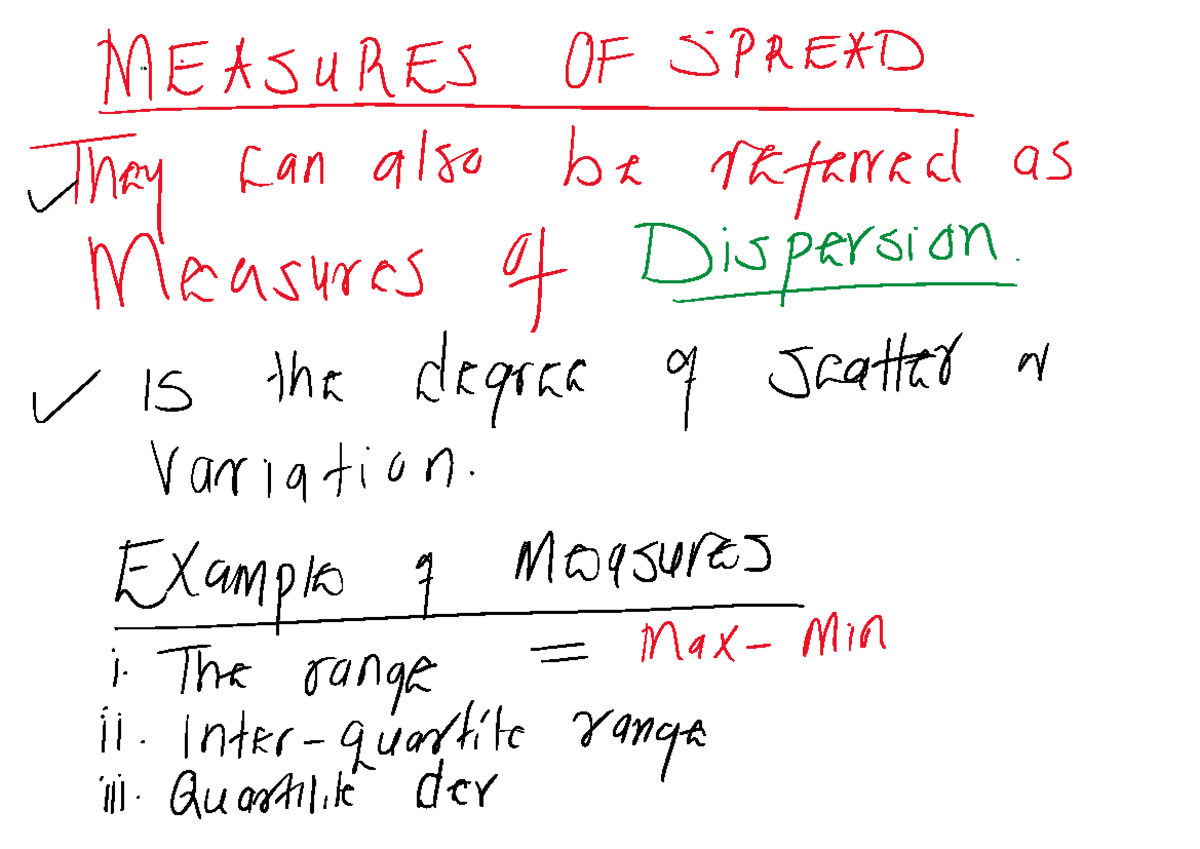 MEASURES OF SPREAD
They can also be referred as
Measures of Dispersion.
is the degree of scatter or
variation.
Example of Measures
i. The range = Max - Min
ii. Inter-quartile range
iii. Quartilile dev